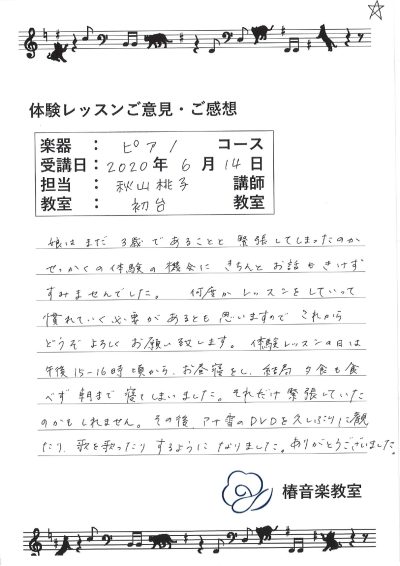 体験レッスンご意見・ご感想
楽器 ： ピアノ コース
受講日： 2020 年 6 月 14 日
担当 ： 秋山桃子 講師
教室 ： 初台 教室
娘はまだ3歳であることと 緊張してしまったのか
せっかくの体験の機会に きちんと お話もきけず
すみませんでした。 何度か レッスンをしていって
慣れていく必要があるとも思いますので これから
どうぞ よろしく お願い致します。 体験レッスンの日は
午後15-16時頃から、お昼寝をし、結局 夕食も食
べず 朝まで 寝てしまいました。それだけ緊張していた
のかもしれません。その後、アナ雪のDVDを久しぶりに観
たり、歌を歌ったり するように なりました。ありがとうございました。
椿音楽教室